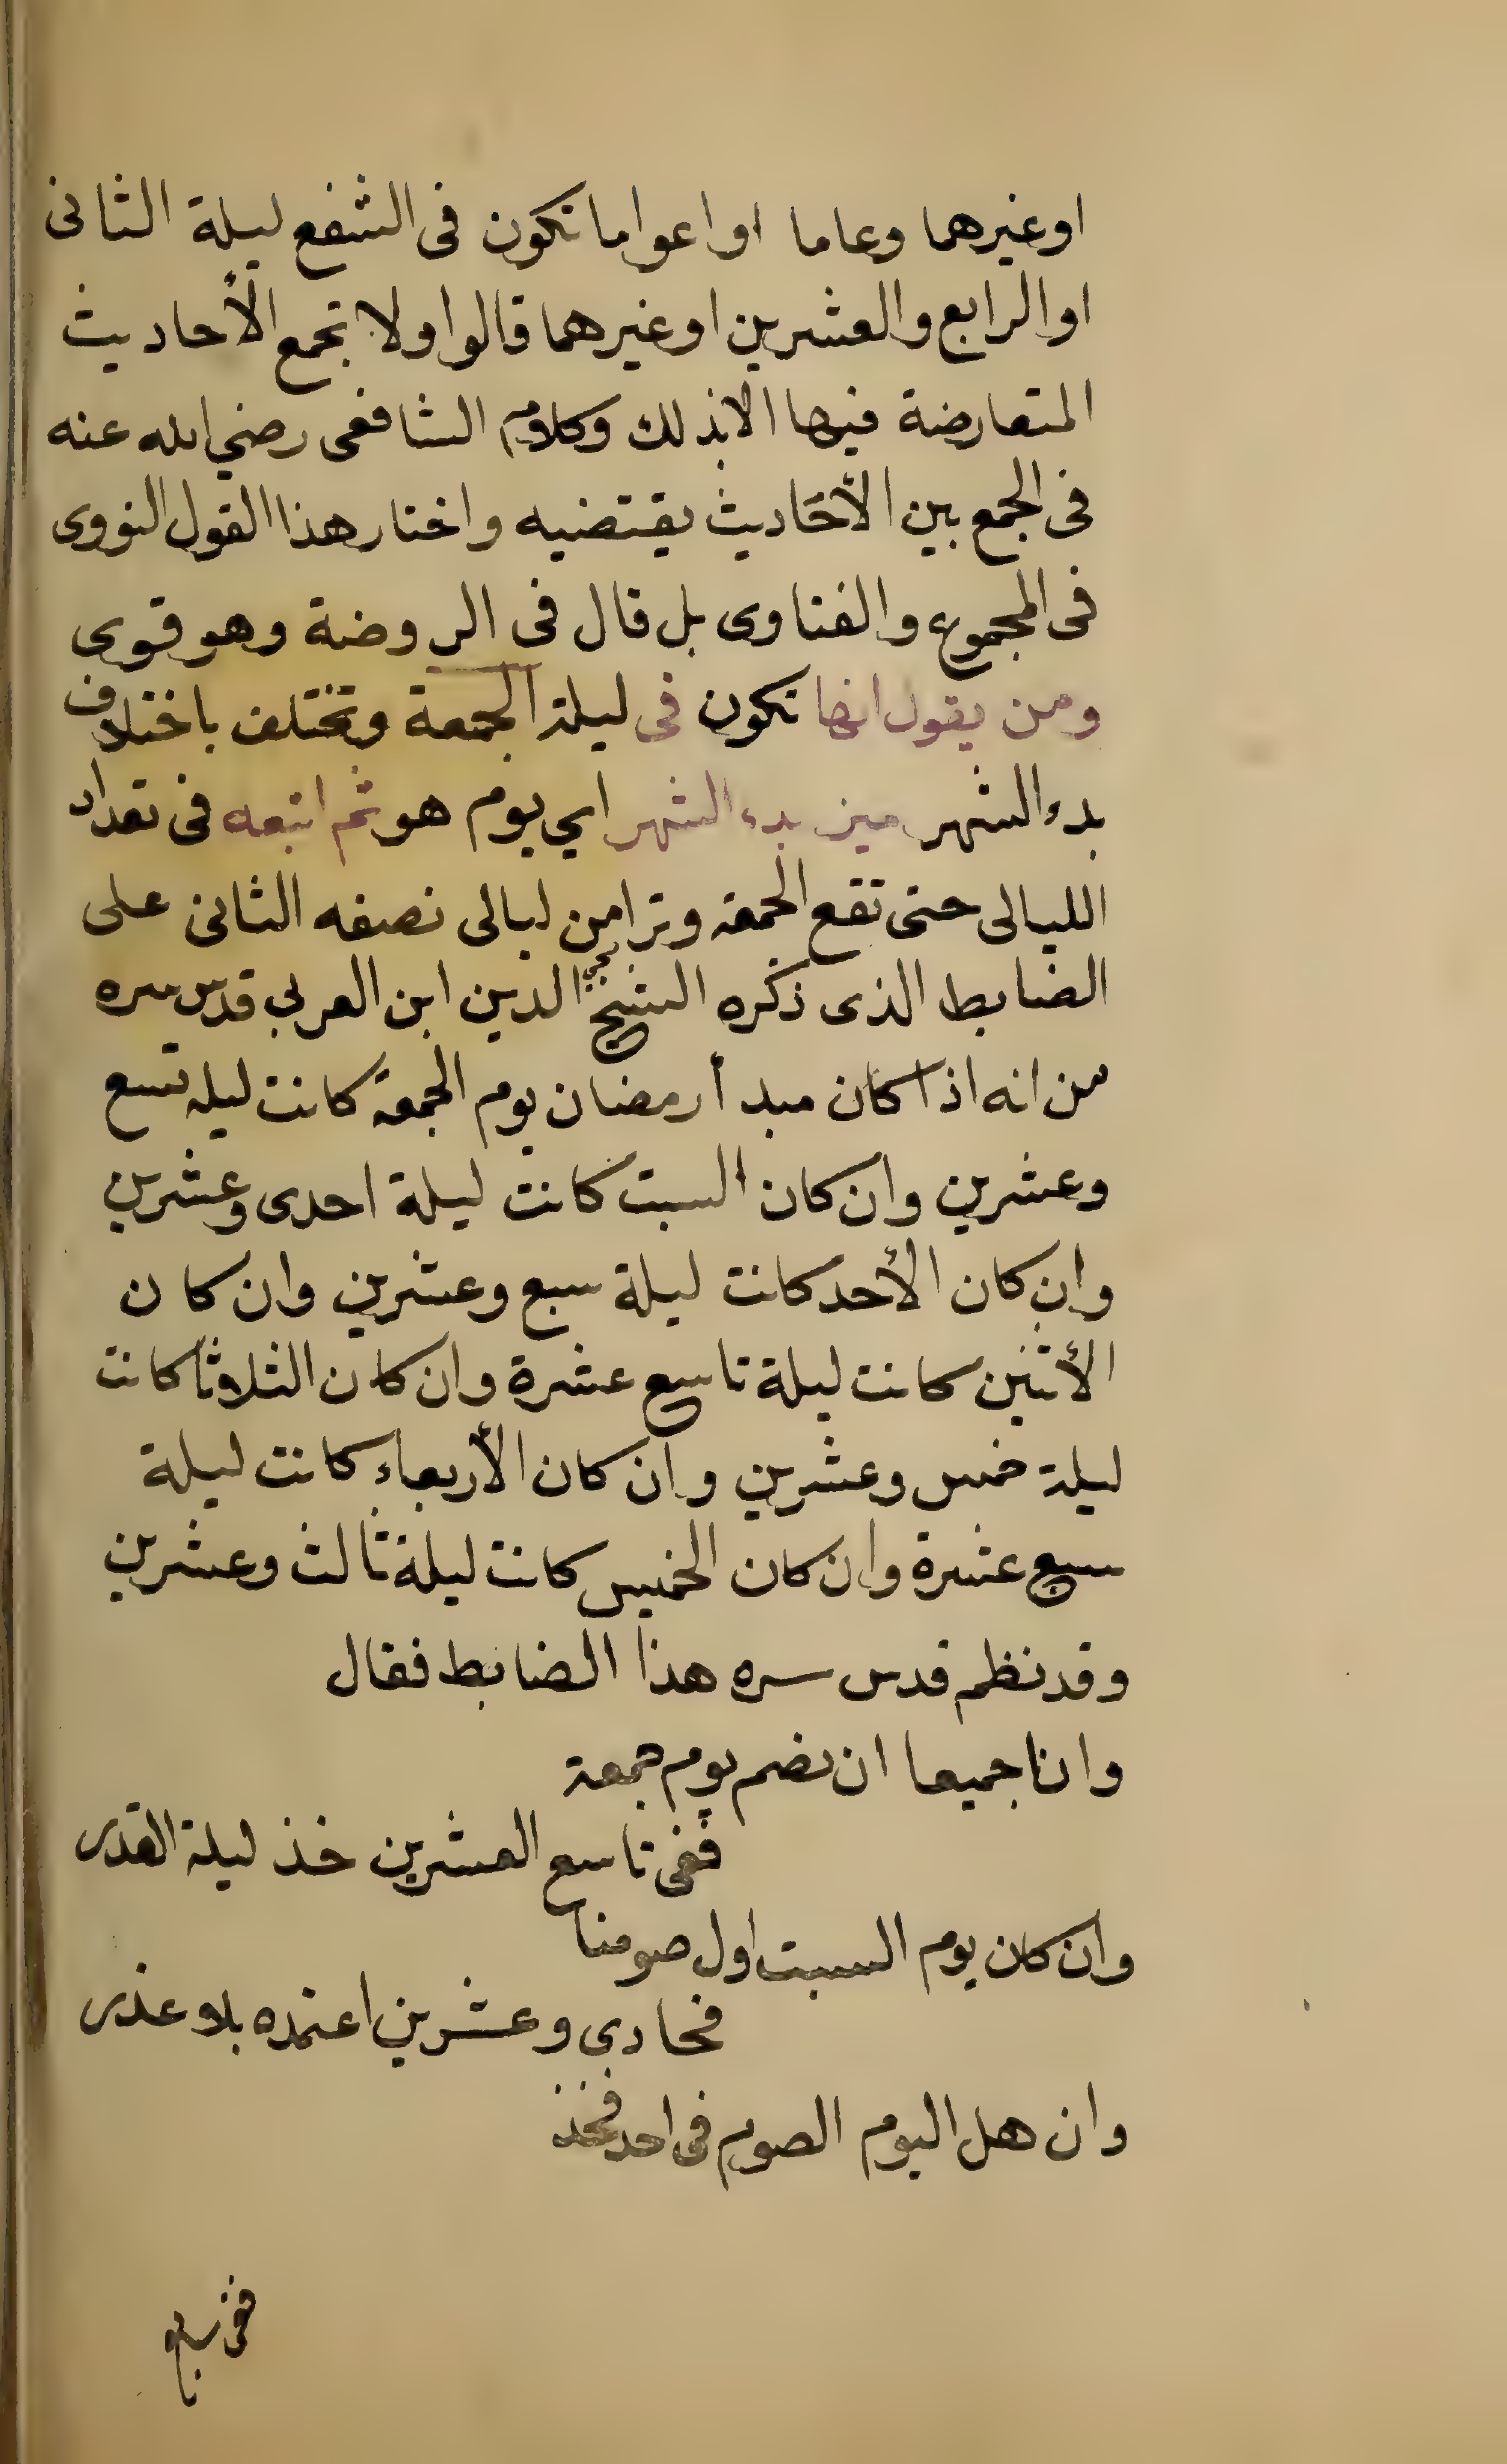 اوغيرهما وعاما اواعواما تكون فى الشفع ليلة الثانى
اوالرابع والعشرين اوغيرهما قالوا ولا تجمع الأحاديث
المتعارضة فيها الا بذلك وكلام الشافعى رضي الله عنه
فى الجمع بين الأحَاديث يقتضيه واختار هذا القول النووى
فى المجموع والفتاوى بل قال فى الروضة وهو قوى
ومن يقول انها تكون فى ليلة الجمعة وتختلف باختلاف
بدء الشهر ميز بدء الشهر اي يوم هو ثم اتبعه فى تعداد
الليالى حتى تقع الجمعة وترا من ليالى نصفه الثانى على
الضابط الذى ذكره الشيخ محي الدين ابن العربي قدس سره
من انه اذا كان مبدأ رمضان يوم الجمعة كانت ليلة تسع
وعشرين وان كان السبت كانت ليلة احدى وعشرين
وان كان الأحد كانت ليلة سبع وعشرين وان كان
الأثنين كانت ليلة تاسع عشرة وان كان الثلاثا كانت
ليلة خمس وعشرين وان كان الأربعاء كانت ليلة
سبع عشرة وان كان الخميس كانت ليلة ثالث وعشرين
وقد نظم قدس سره هذا الضابط فقال
وانا جميعا ان نصم يوم جمعة
ففى تاسع العشرين خذ ليلة القدر
وان كان يوم السبت اول صومنا
فحادي وعشرين اعتمده بلا عذر
وان هل اليوم الصوم فى احد فخذ
ففى سابع